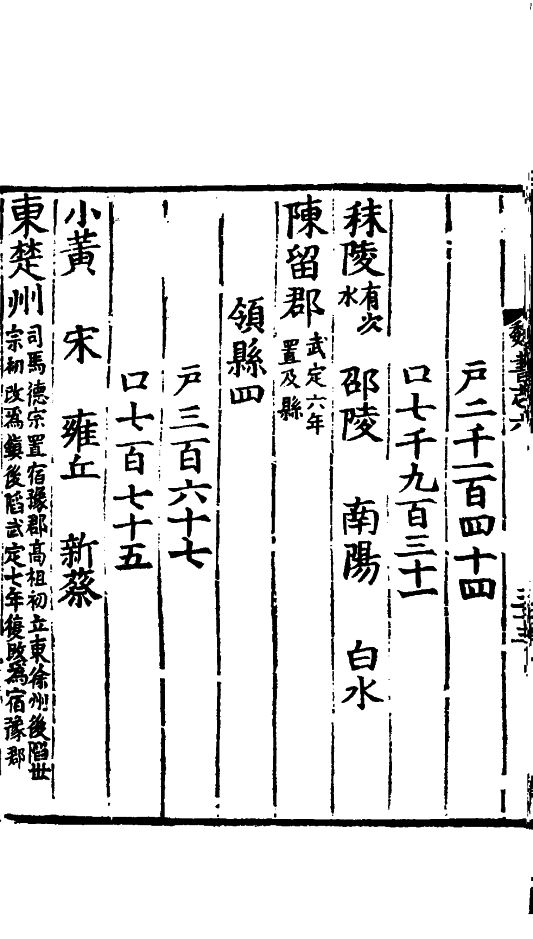 戸二千一百四十四
口七千九百三十一
秣陵 有次水 邵陵 南陽 白水
陳留郡 武定六年置及縣
領縣四
戸三百六十七
口七百七十五
小黃 宋 雍丘 新蔡
東楚州 司馬德宗置宿豫郡高祖初立東徐州後陷世宗初改爲鎭後陷武定七年復改爲宿豫郡